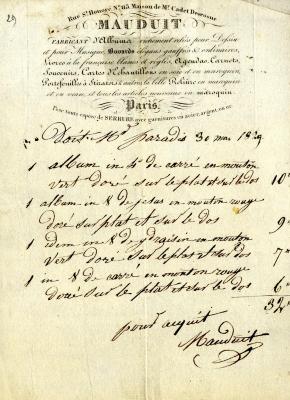 29
Rue St. Honoré No. 115 Maison de Mr. Cadet Devousne
MAUDUIT
FABRICANT d'Albums entièrement reliés pour Dessin
et pour Musique, Buvards élégans gauffrés & ordinaires,
Livres à la française blancs et réglés, Agendas, Carnets,
Souvenirs, Cartes d'échantillons en soie et en maroquin,
Portefeuilles
et en veau, et tous les articles nouveaux en maroquin.
Paris.
Pour toute espèce de SERRURE, avec garnitures en acier, argent, ou or
Doit Mr paradis 30 mai
1 album in 4° de carré en mouton
vert doré sur le plat et sur le dos 10"
1 album in 8 de jesus en mouton rouge
doré sur plat et sur le dos 9"
1 idem in 8 de raisin en mouton
vert doré sur le plat et sur le dos 7"
1 in 8 de carré en mouton rouge
doré sur le plat et sur le dos 6"
32
pour acquit
Mauduit